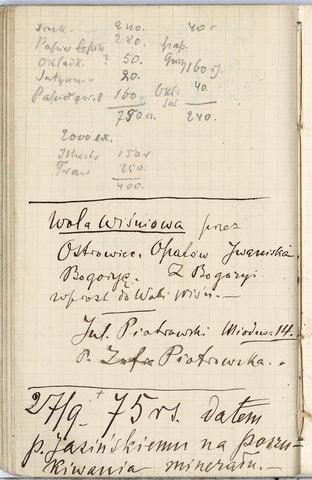 Druk. 240. 40 r
Papier 280. pap.
Okładk. ? 50. 160 rs.
Satynow 20. Okł. 40.
Papier 160. 240.
750 rs.
2000 ex.
150 r
250.
400.
Wola Wiśniowa przez
Ostrowiec, Opatów Iwaniska
Bogoryę. Z Bogoryi
wprost do Woli Wiśn. —
Inż. Piotrowski Miodow. 14.
P. Zofia Piotrowska.
27/9 75 rs. dałem
p. Jasińskiemu na poszu-
kiwania minerału. —